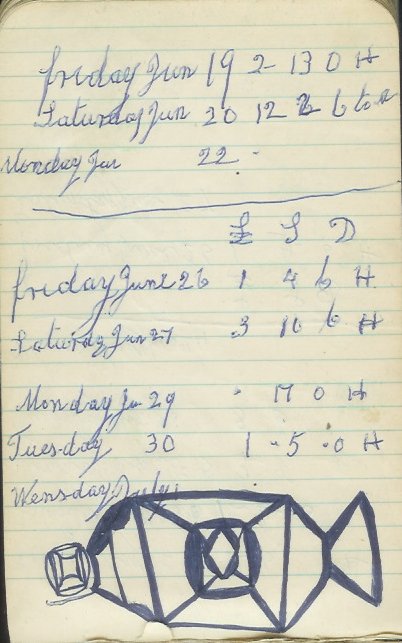 Friday Jun 19 2 - 13 0 H
Saturday Jun 20 12 6
Monday Jun 22 -
£ S D
Friday June 26 1 4 6 H
Saturday Jun 27 3 10 6 H
Monday Ju 29 - 17 0 H
Tuesday 30 1 - 5 - 0 H
Wensday July 1